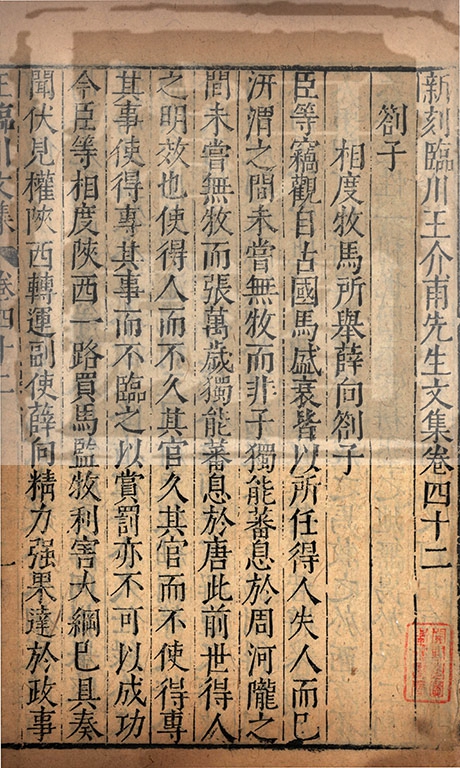 新刻臨川王介甫先生文集卷四十二
劄子
相度牧馬所舉薛向劄子
臣等竊觀自古國馬盛衰皆以所任得人失人而已
汧渭之間未嘗無牧而非子獨能蕃息於周河隴之
間未嘗無牧而張萬歲獨能蕃息於唐此前世得人
之明效也使得人而不久其官久其官而不使得專
其事使得專其事而不臨之以賞罰亦不可以成功
今臣等相度陝西一路買馬監牧利害大綱已具奏
聞伏見權陝西轉運副使薛向精力强果達於政事
王臨川文集 卷四十二